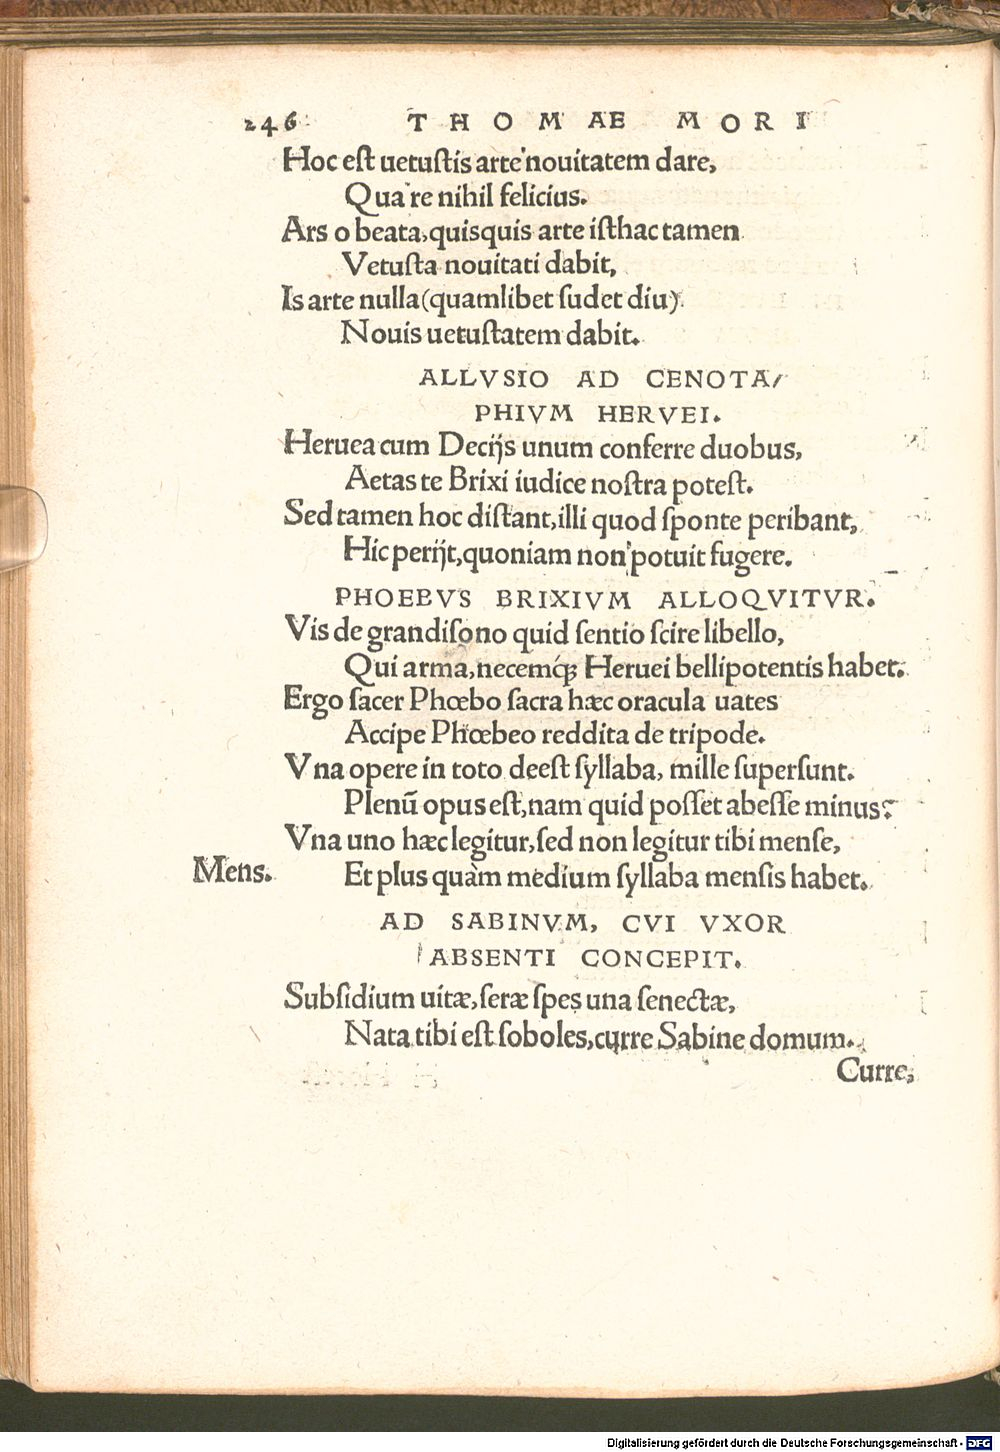 246 THOMAE MORI
Hoc est uetustis arte nouitatem dare,
Qua re nihil felicius.
Ars o beata, quisquis arte isthac tamen
Vetusta nouitati dabit,
Is arte nulla (quamlibet sudet diu)
Nouis uetustatem dabit.
ALLVSIO AD CENOTA/
PHIVM HERVEI.
Heruea cum Decijs unum conferre duobus,
Aetas te Brixi iudice nostra potest.
Sed tamen hoc distant, illi quod sponte peribant,
Hic perijt, quoniam non potuit fugere.
PHOEBVS BRIXIVM ALLOQVITVR.
Vis de grandisono quid sentio scire libello,
Qui arma, necemq́; Heruei bellipotentis habet.
Ergo sacer Phœbo sacra hæc oracula uates
Accipe Phœbeo reddita de tripode.
Vna opere in toto deest syllaba, mille supersunt.
Plenū opus est, nam quid posset abesse minus?
Vna uno hæc legitur, sed non legitur tibi mense,
Mens. Et plus quàm medium syllaba mensis habet.
AD SABINVM, CVI VXOR
ABSENTI CONCEPIT.
Subsidium uitæ, seræ spes una senectæ,
Nata tibi est soboles, curre Sabine domum.
Curre,
Digitalisierung gefördert durch die Deutsche Forschungsgemeinschaft - DFG